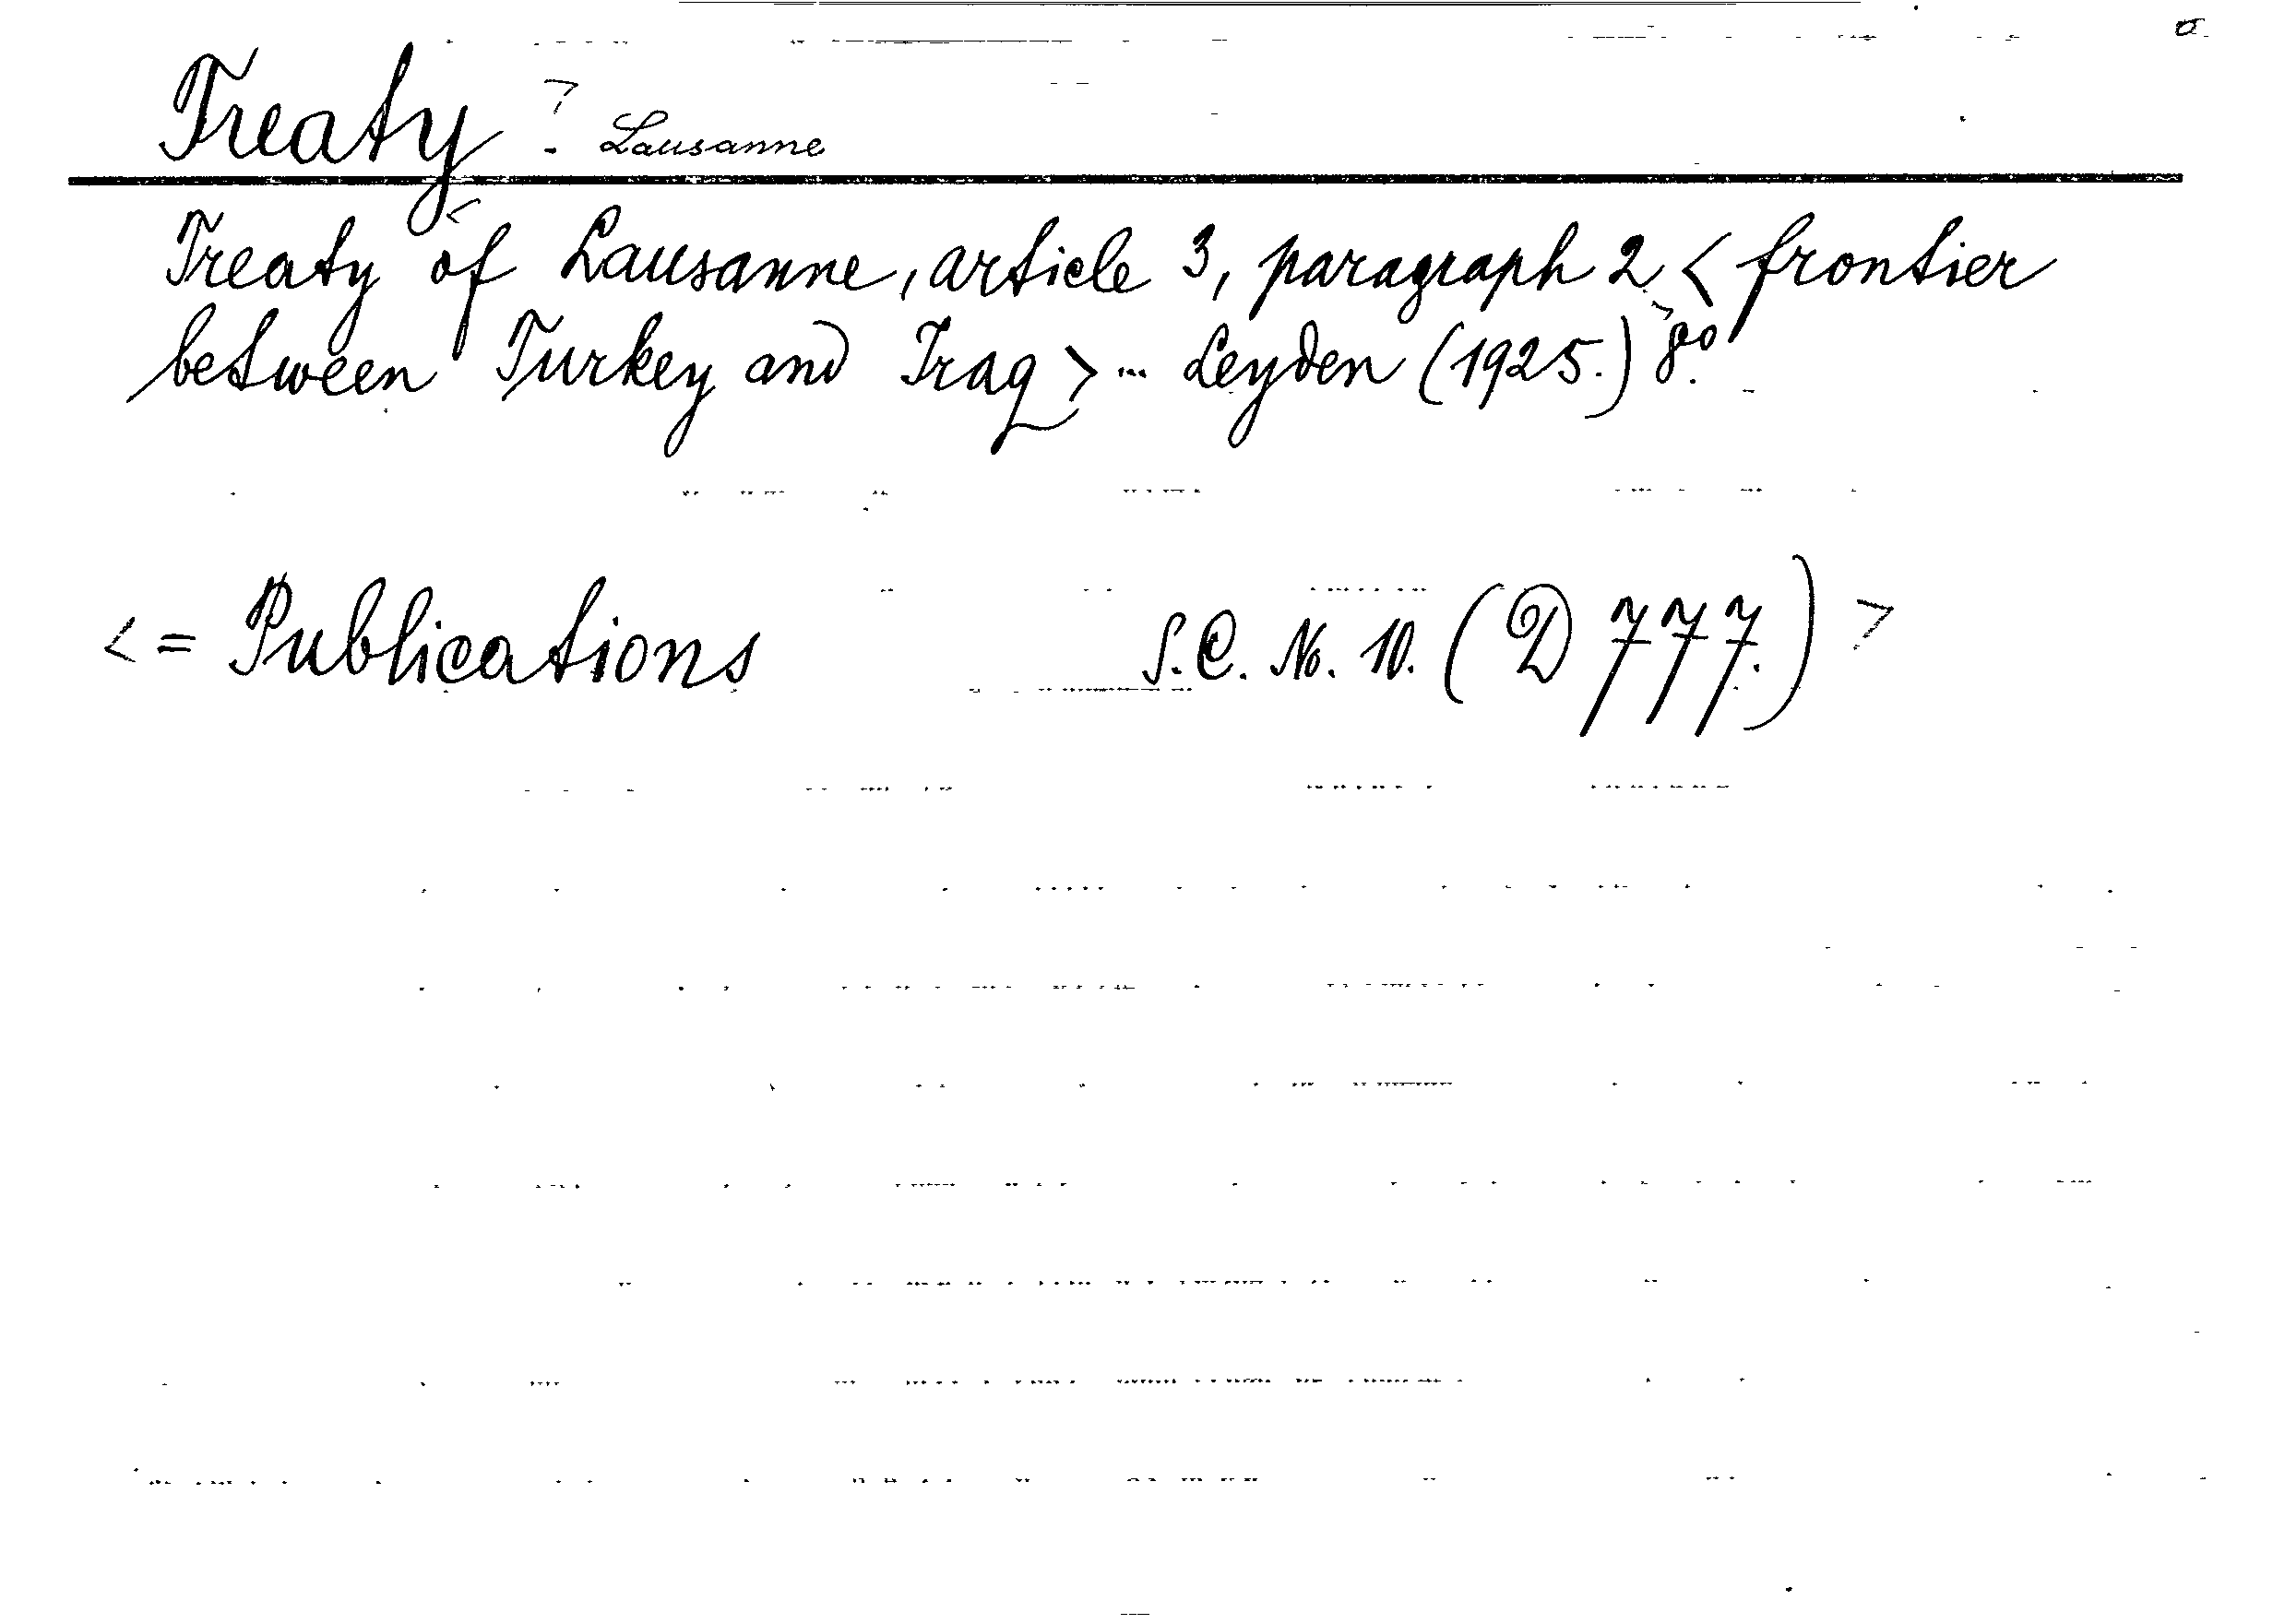 Treaty ? Lausanne
Treaty of Lausanne, article 3, paragraph 2 < frontier
between Turkey and Iraq > ... Leyden (1925.) 8º.
< = Publications S.C. No. 10. (D 777.) >